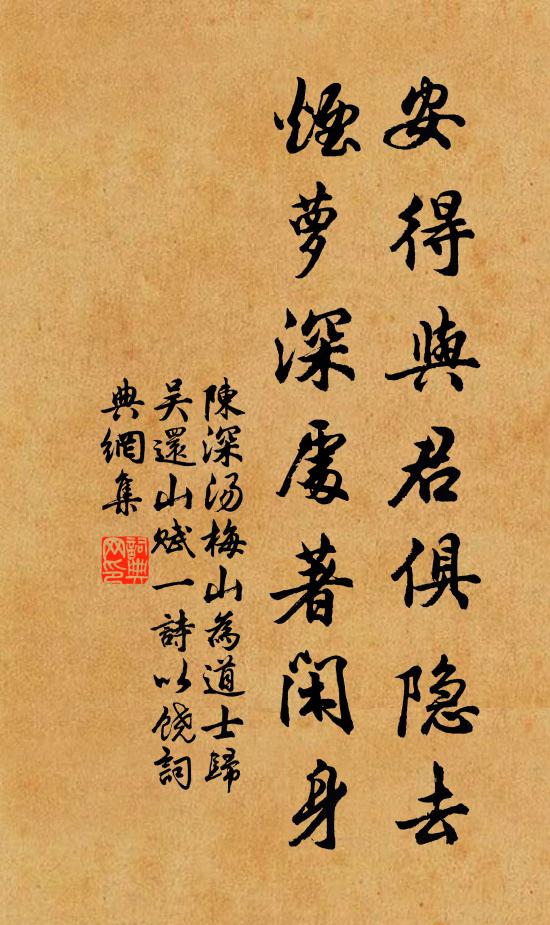 安得與君俱隐去
煙萝深處著閑身
陳深汤梅山為道士歸
吴還山赋一詩以饒詞
典網集
詞典
网印